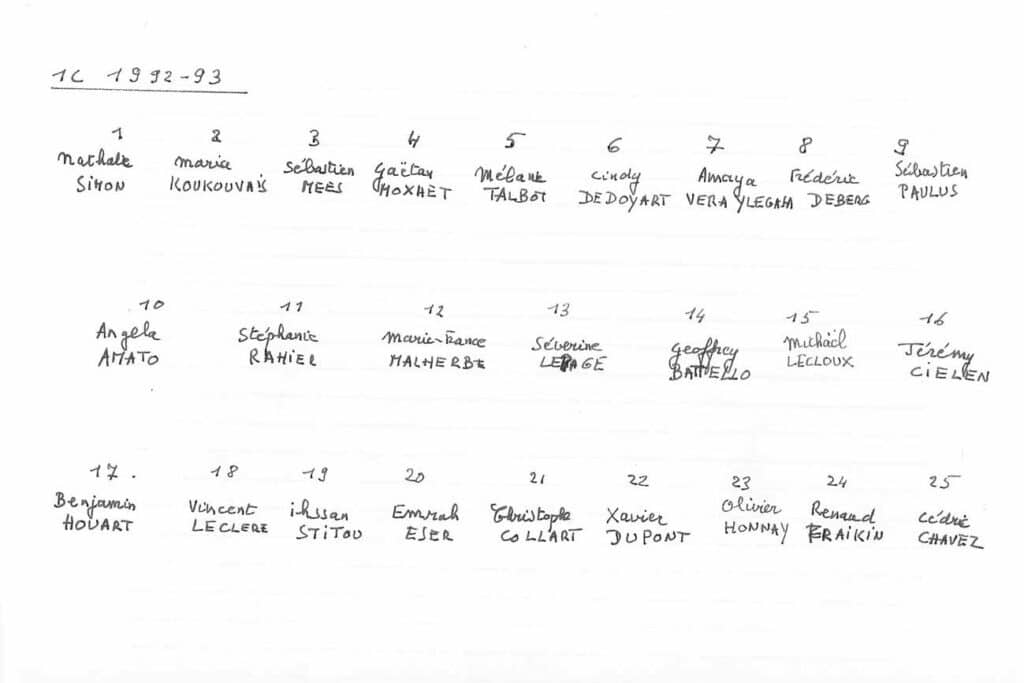 1C 1992-93
1 2 3 4 5 6 7 8 9
Nathalie Maria Sébastien Gaëtan Mélanie Cindy Amaya Frédéric Sébastien
SIMON KOUKOUVAÏS MEES MOXHET TALBOT DEDOYART VERA YLEGAHA DEBERG PAULUS
10 11 12 13 14 15 16
Angela Stéphanie Marie-France Séverine Geoffrey Michaël Jérémy
AMATO RAHIER MALHERBE LEPAGE BATTELLO LECLOUX CIELEN
17. 18 19 20 21 22 23 24 25
Benjamin Vincent ihssan Emrah Christophe Xavier Olivier Renaud Cédric
HOUART LECLERE STITOU ESER COLLART DUPONT HONNAY FRAIKIN CHAVEZ